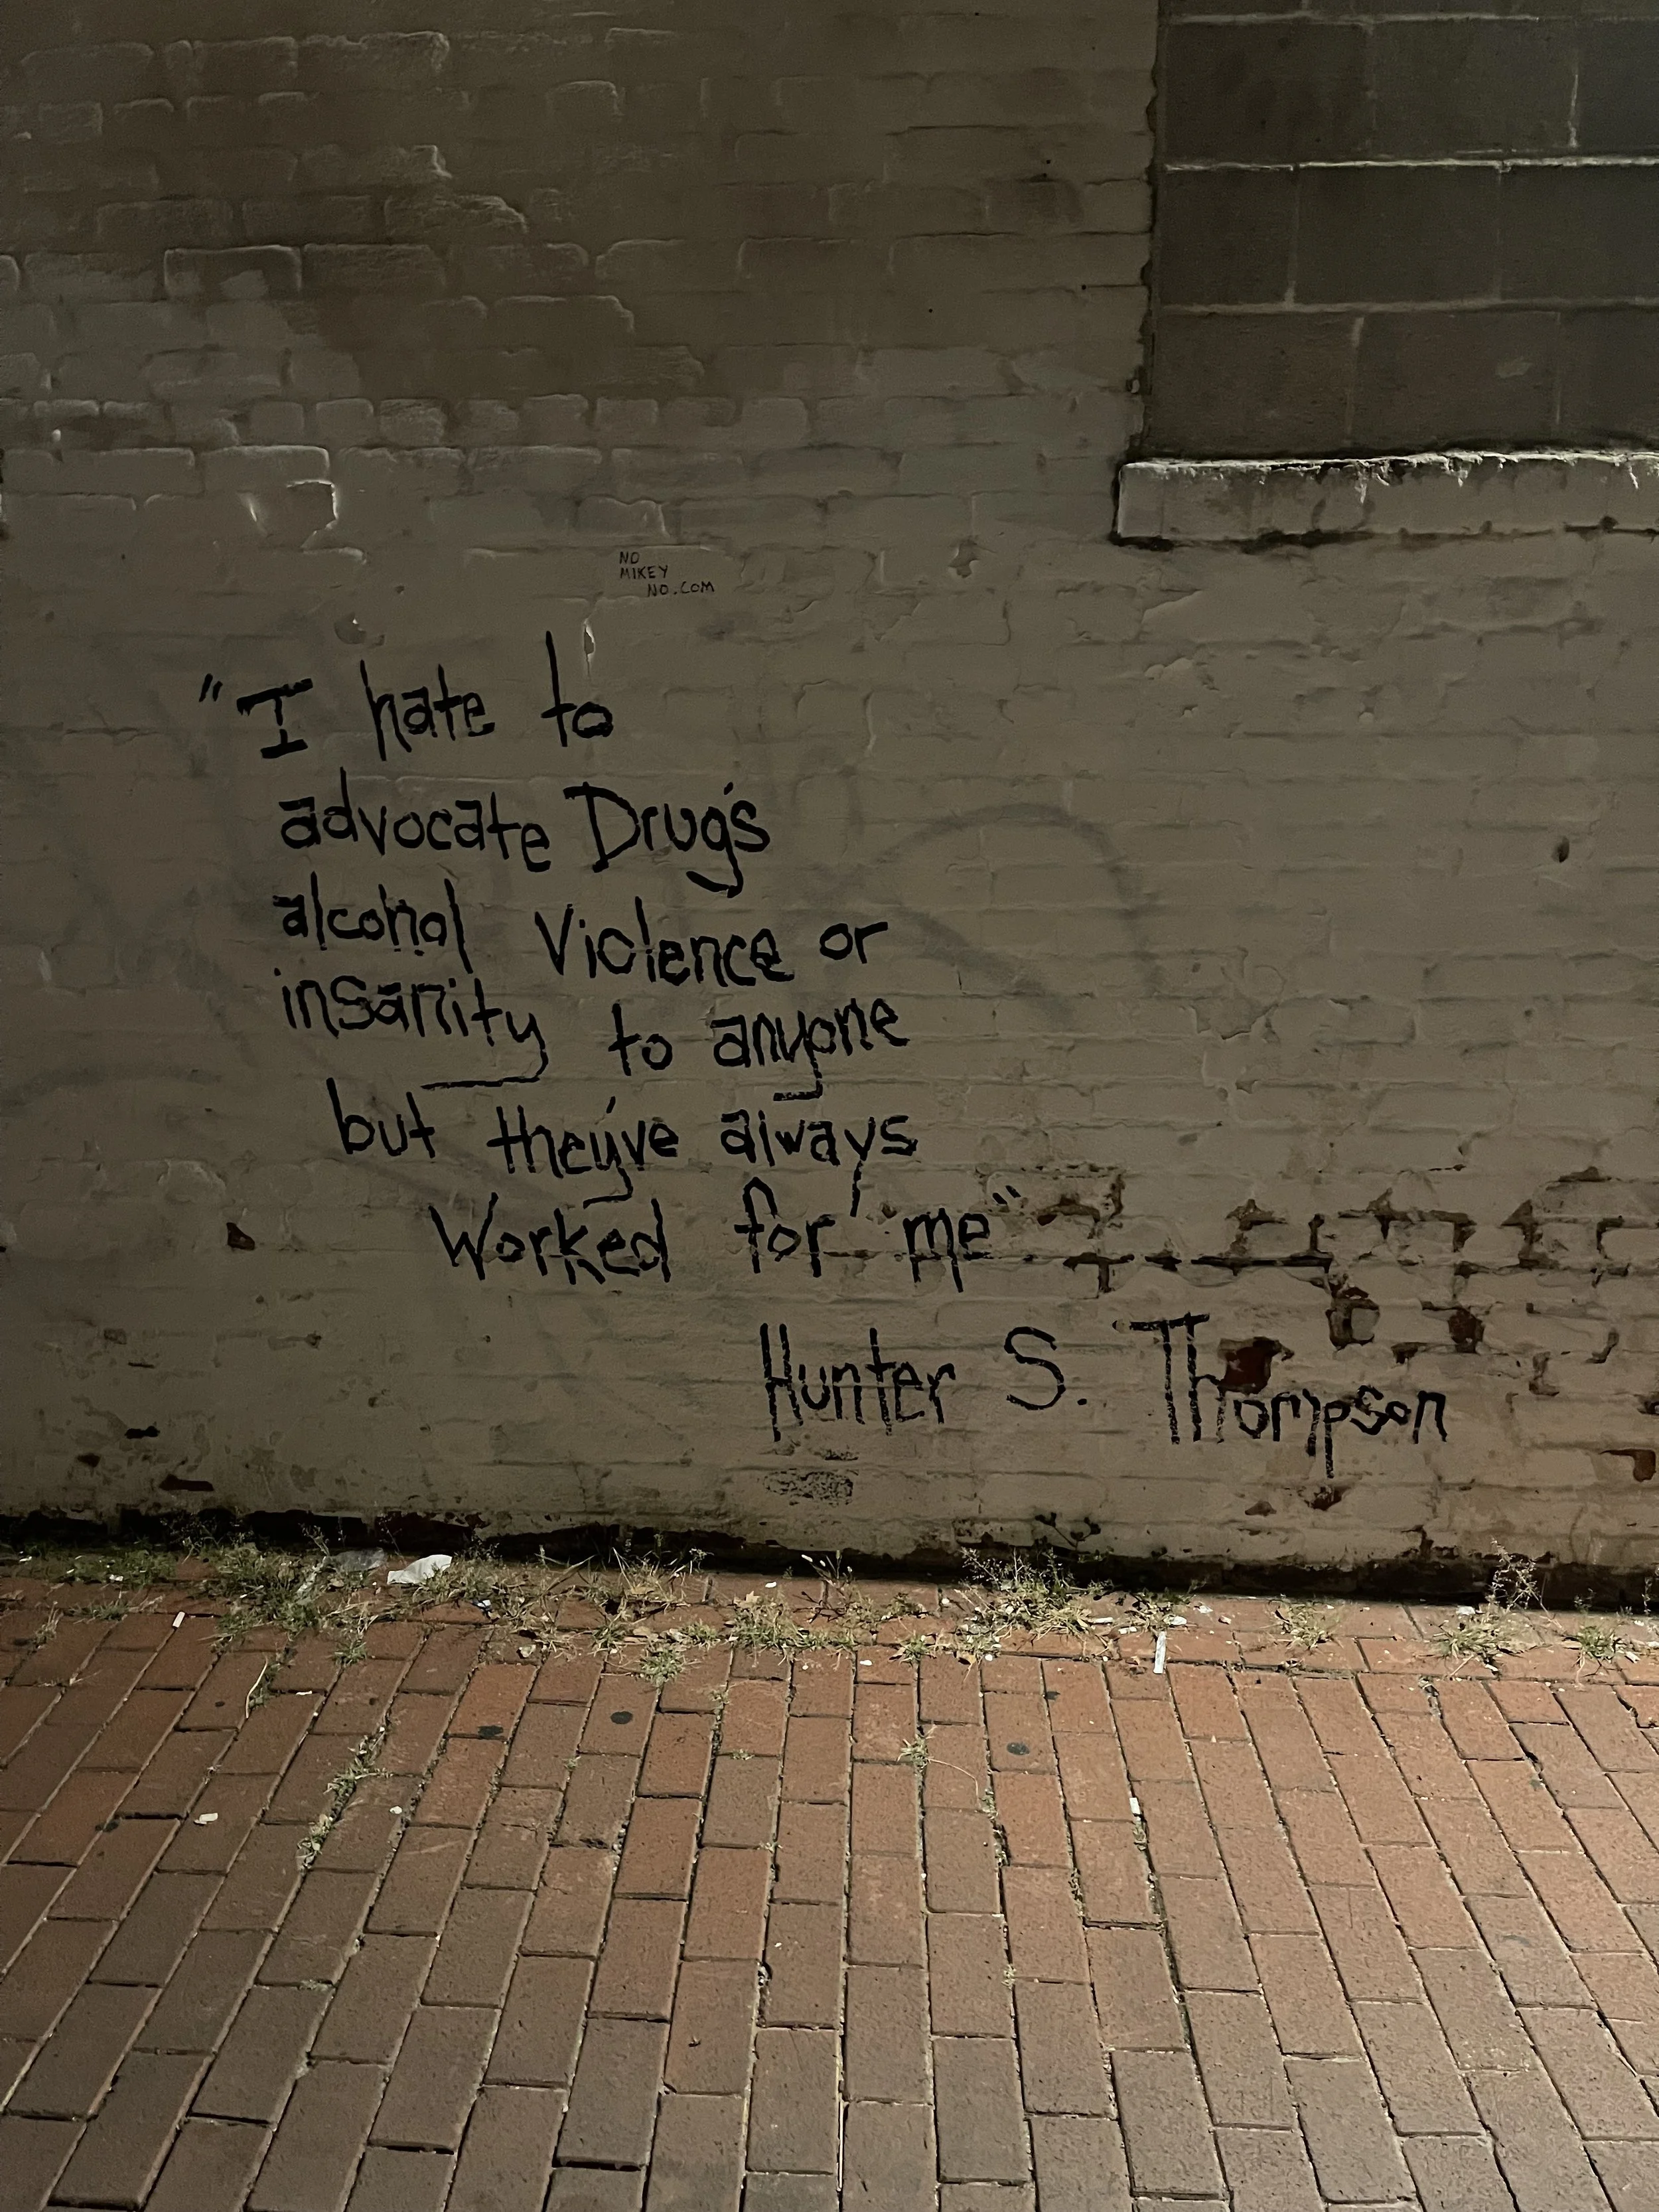 NO
MIKEY
NO.COM
"I hate to
advocate Drug's
alcohol Violence or
insanity to anyone
but they've always
Worked for me"
Hunter S. THompson